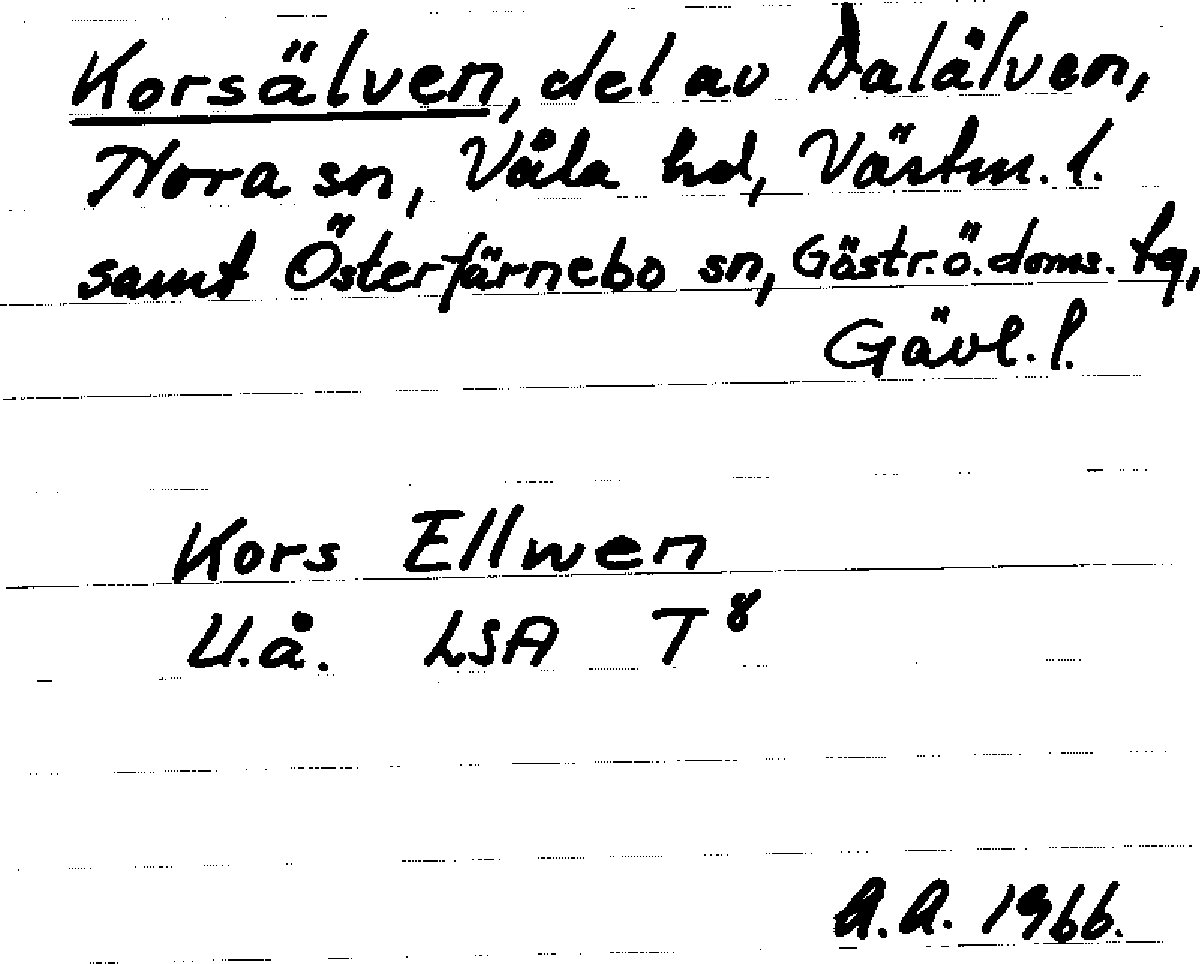 Korsälven, del av Dalälven,
Nora sn, Våla hd, Västm. l.
samt Österfärnebo sn, Gästr. ö. doms. tg,
Gävl. l.
Kors Ellwen
U.å. LSA T 8
A.A. 1966.